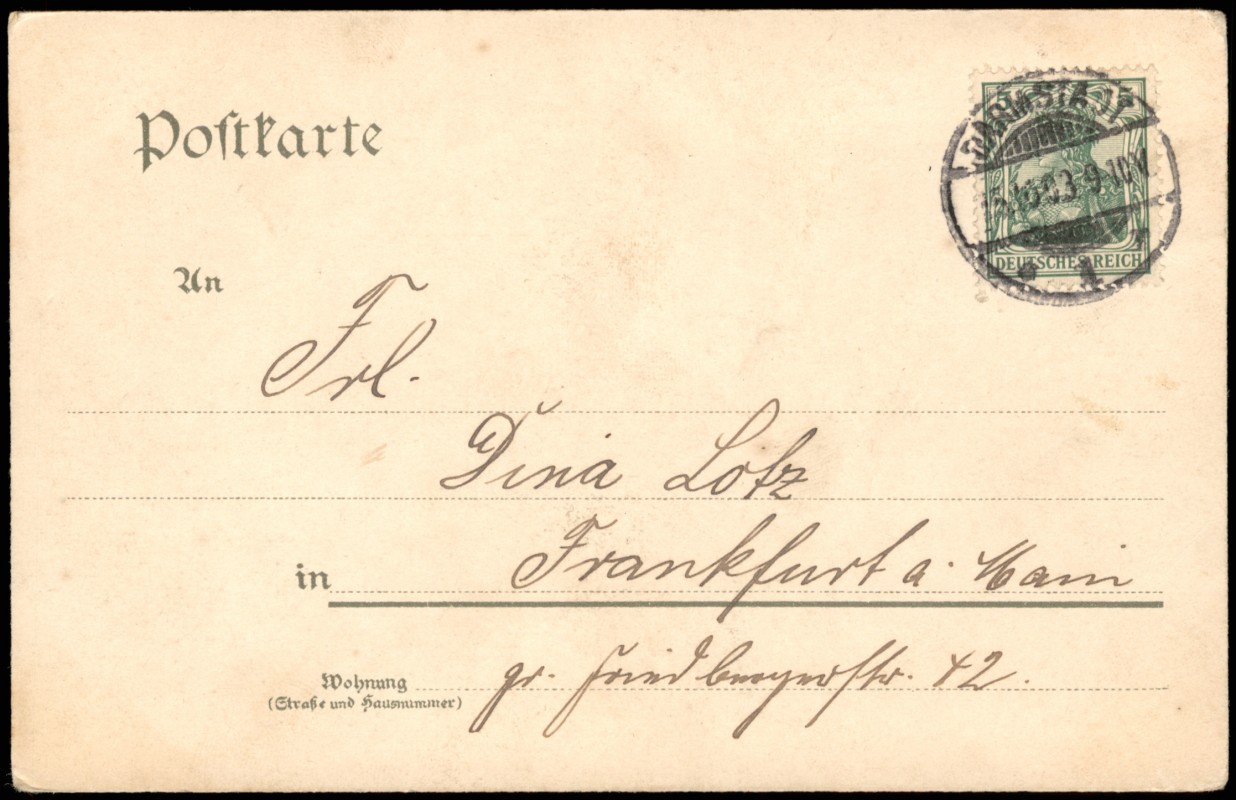 Postkarte
DARMSTADT
03 9-10V.
DEUTSCHES REICH
1
An
Frl.
Dina Lotz
in Frankfurt a. Main
Wohnung
(Straße und Hausnummer)
gr. Friedbergerstr. 42.